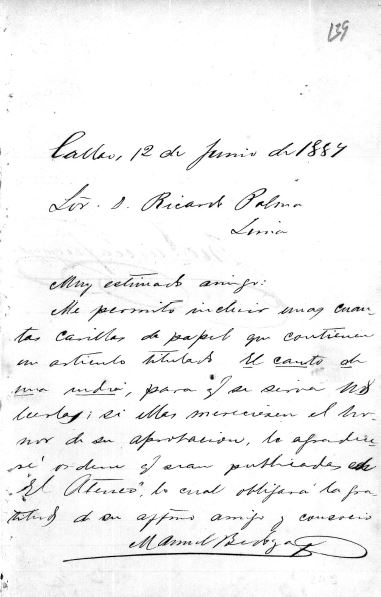 139
Callao, 12 de Junio de 1887
Sor. D. Ricardo Palma
Lima
Muy estimado amigo:
Me permito incluir unas cuan-
tas carillas de papel que contienen
un artículo titulado El canto de
una india, para q' se sirva
leerlas; si ellas merecieren el ho-
nor de su aprobacion, le agradece-
ré ordene q' sean publicadas en
"El Ateneo", lo cual obligará la gra-
titud de su affmo amigo y consocio
Manuel Bedoya